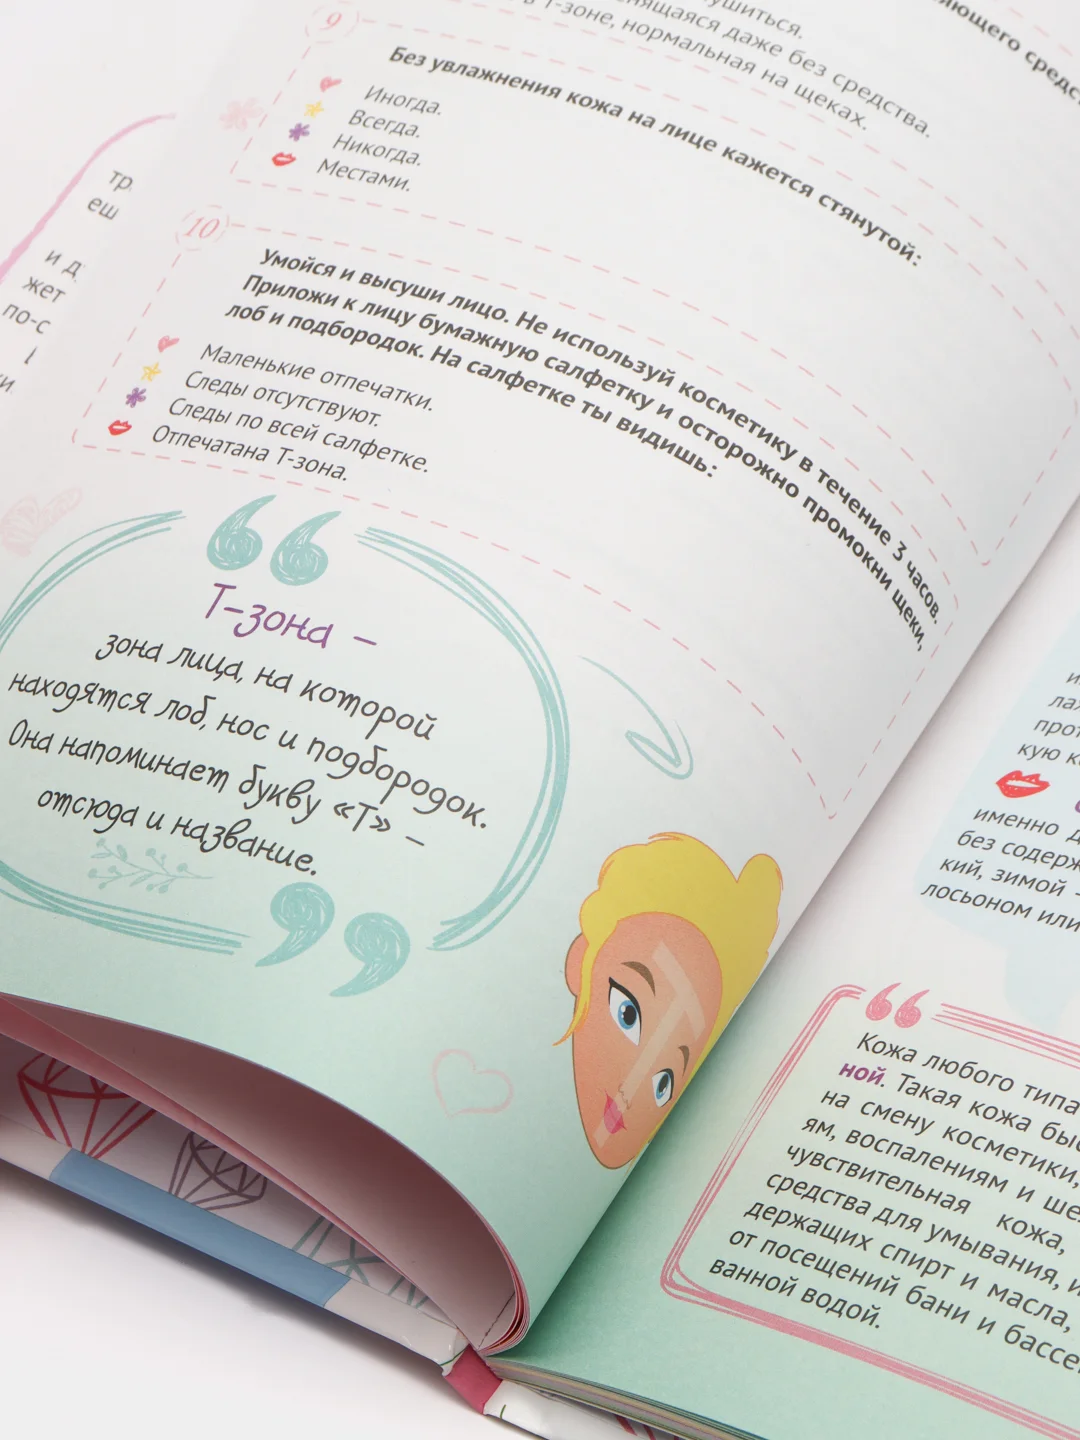 в Т-зоне, нормальная на щеках.
даже без средства.
9
Без увлажнения кожа на лице кажется стянутой:
Иногда.
Всегда.
Никогда.
Местами.
10
Умойся и высуши лицо. Не используй косметику в течение 3 часов.
Приложи к лицу бумажную салфетку и осторожно промокни щеки,
лоб и подбородок. На салфетке ты видишь:
Маленькие отпечатки.
Следы отсутствуют.
Следы по всей салфетке.
Отпечатана Т-зона.
Т-зона –
зона лица, на которой
находятся лоб, нос и подбородок.
Она напоминает букву «Т» –
отсюда и название.
именно
без
кий, зимой –
лосьоном или
Кожа любого типа
ной. Такая кожа
на смену косметики,
ям, воспалениям и
чувствительная кожа,
средства для умывания,
держащих спирт и масла,
от посещений бани и
ванной водой.